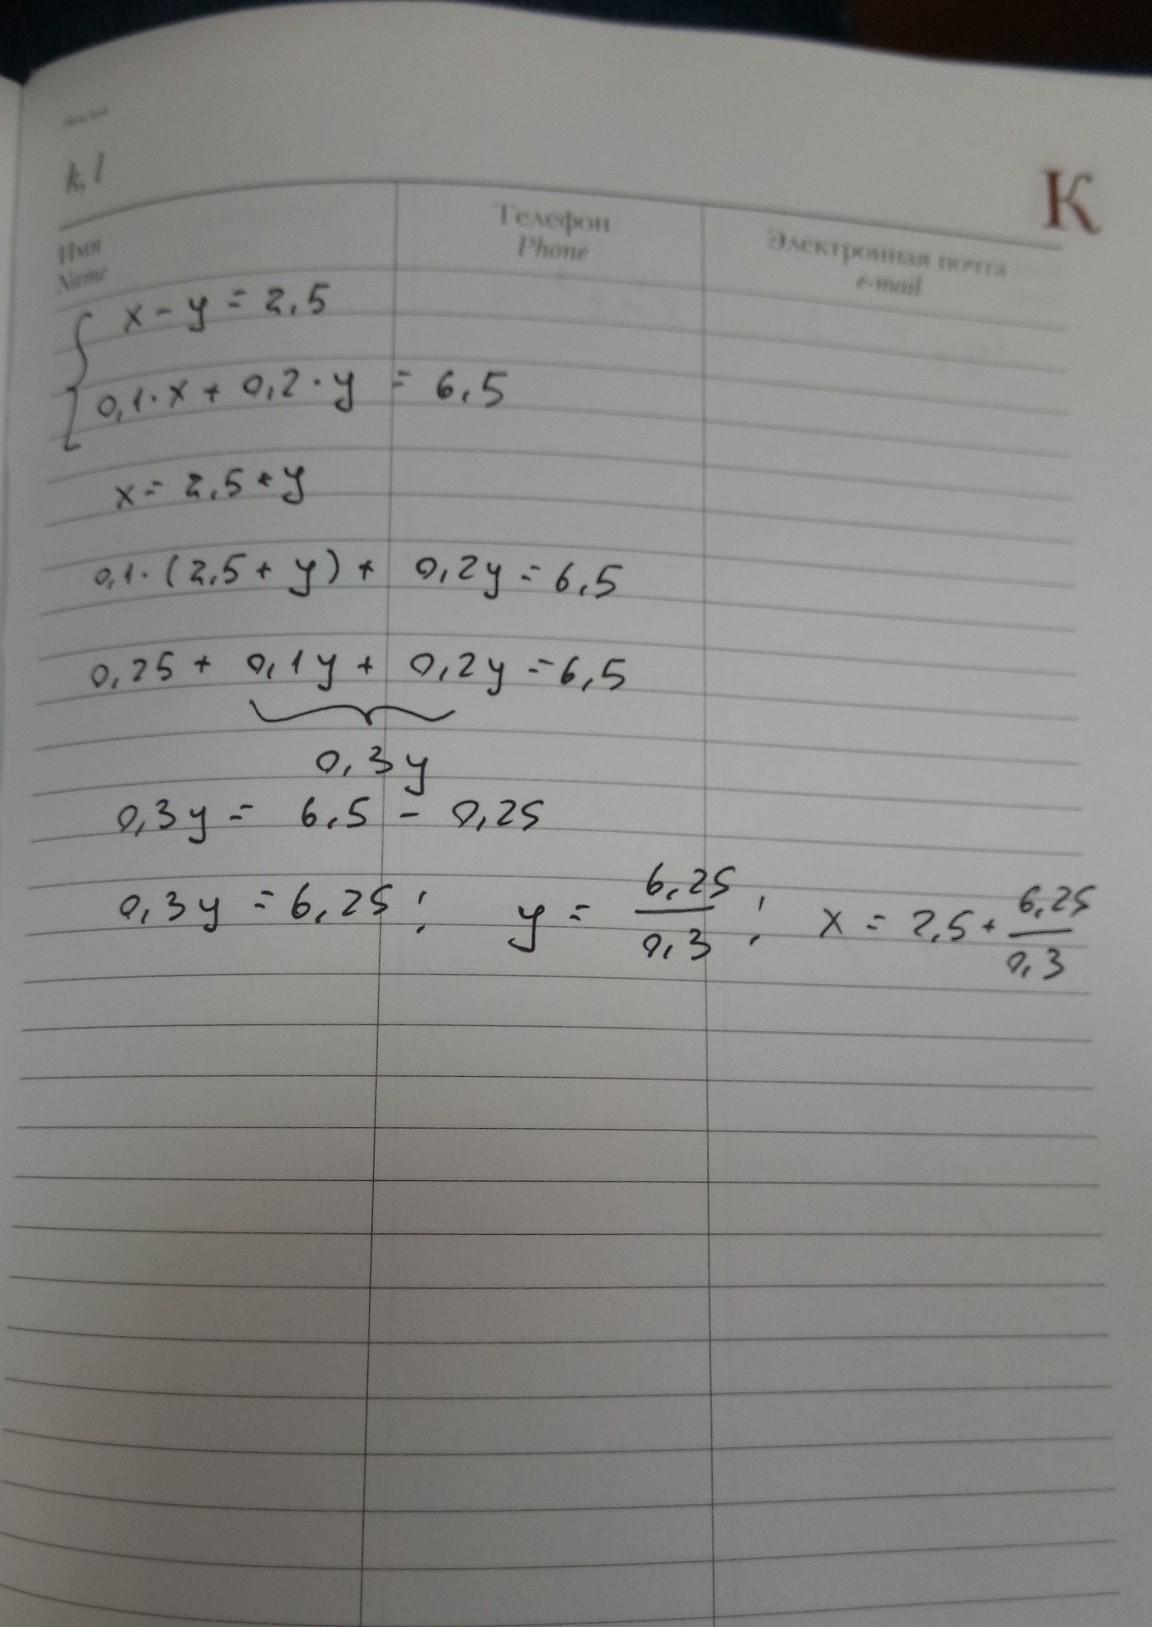 k, l
K
Имя
Name
Телефон
Phone
Электронная почта
e-mail
x - y = 2,5
0,1·x + 0,2·y = 6,5
x = 2,5 + y
0,1·(2,5 + y) + 0,2y = 6,5
0,25 + 0,1y + 0,2y = 6,5
0,3y
0,3y = 6,5 - 0,25
0,3y = 6,25; y = 6,25/0,3; x = 2,5 + 6,25/0,3